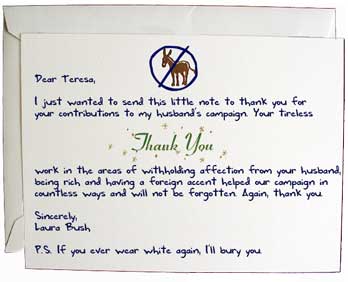 Dear Teresa,
I just wanted to send this little note to thank you for
your contributions to my husband's campaign. Your tireless
Thank You
work in the areas of withholding affection from your husband,
being rich and having a foreign accent helped our campaign in
countless ways and will not be forgotten. Again, thank you.
Sincerely,
Laura Bush
P.S. If you ever wear white again, I'll bury you.